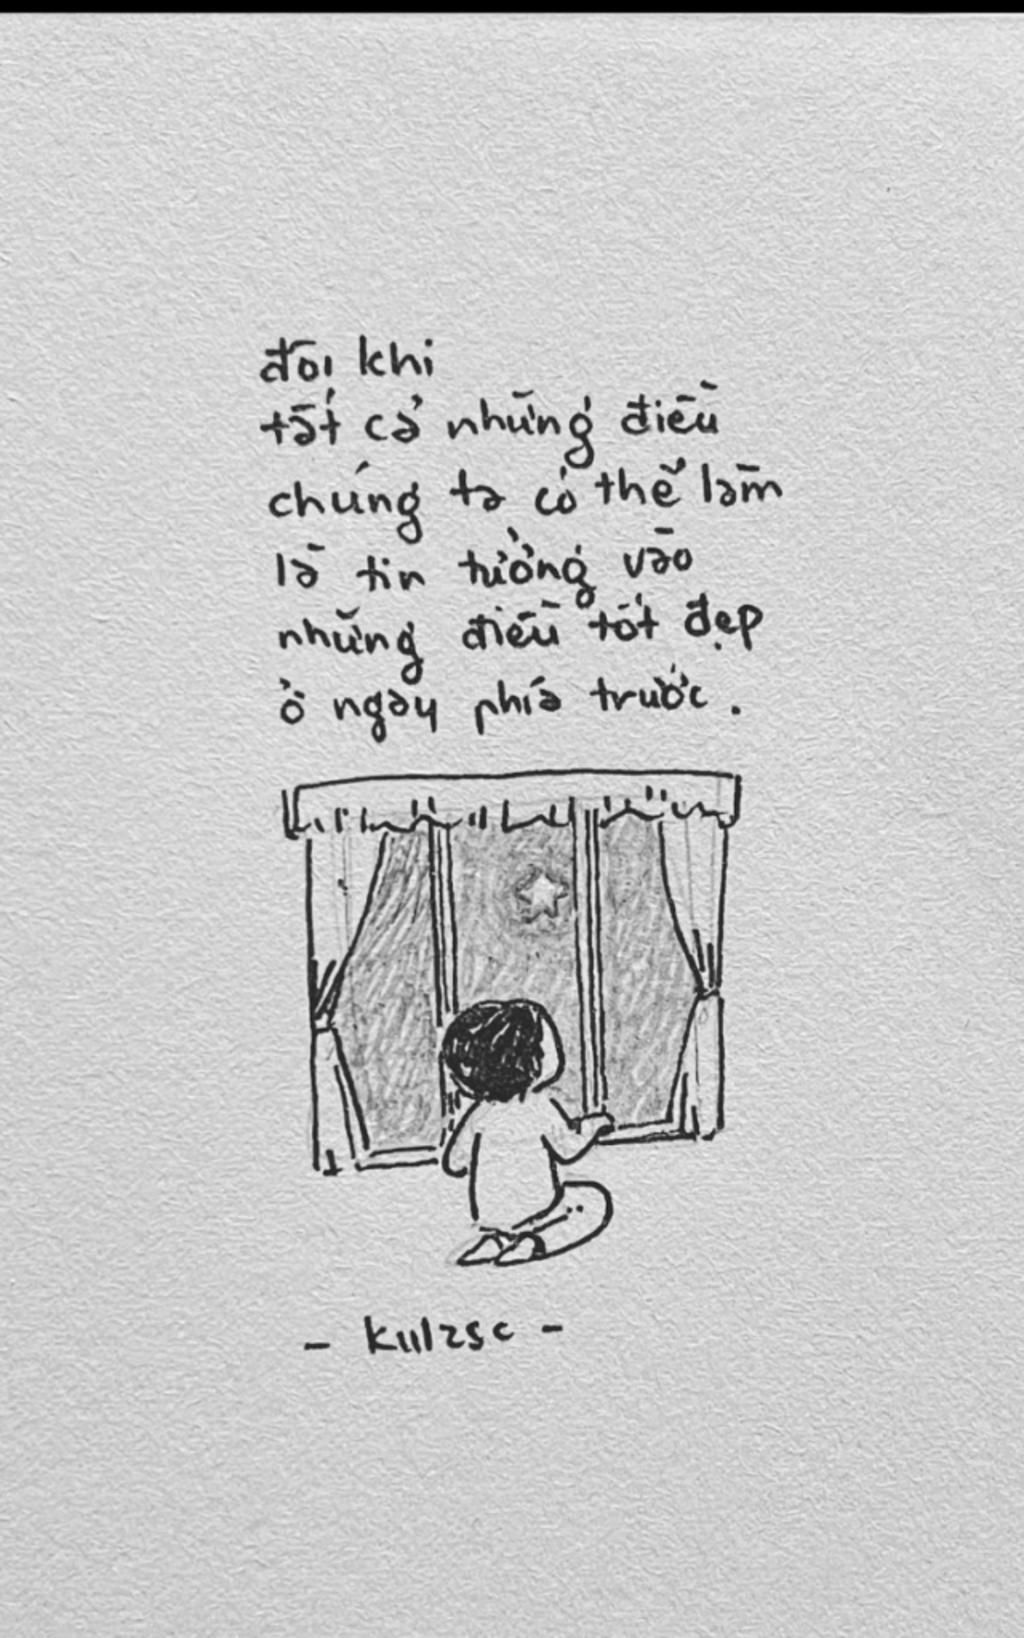 đôi khi
tất cả những điều
chúng ta có thể làm
là tin tưởng vào
những điều tốt đẹp
ở ngày phía trước.
- kulzsc -